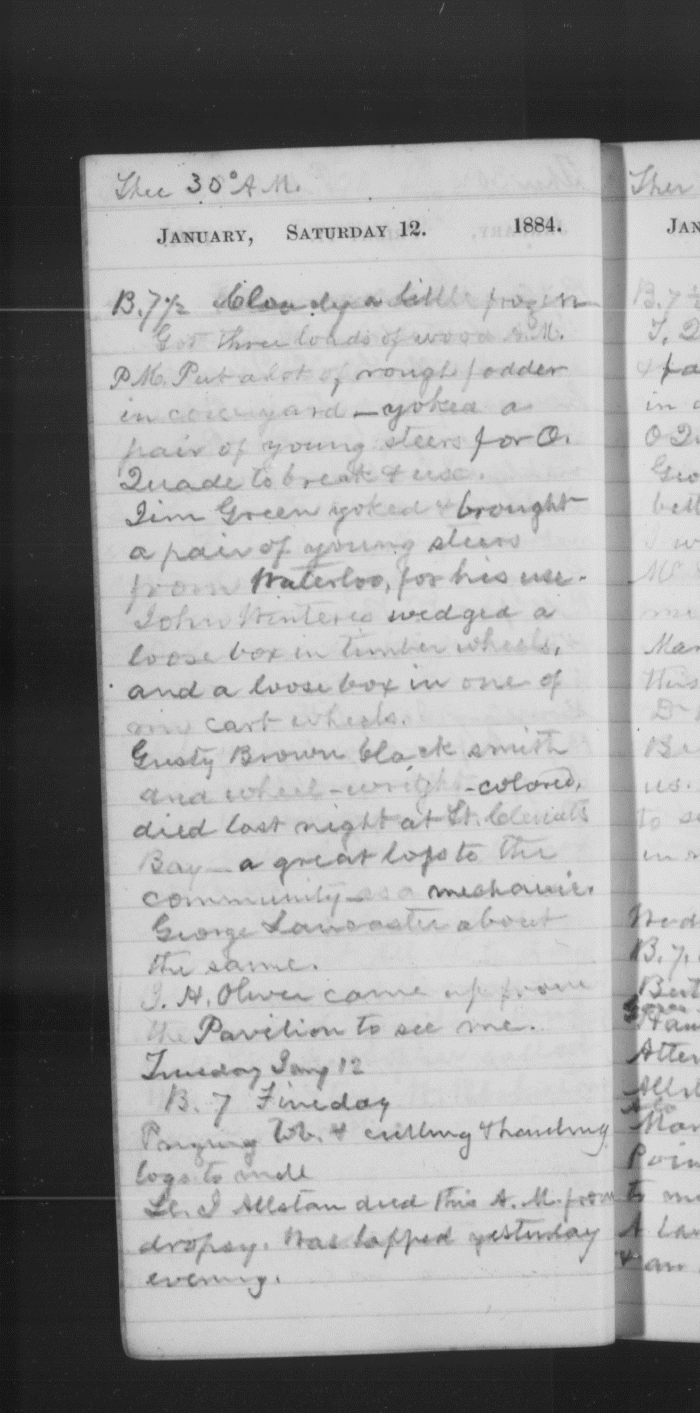 Ther 30° A.M.
January, Saturday 12. 1884.
B. 7 1/2 Cloudy a little frozen
Got three loads of wood A.M.
P.M. Put a lot of rough fodder
in cow yard — yoked a
pair of young steers for O.
Quade to break & use.
Jim Green yoked & brought
a pair of young steers
from Waterloo, for his use.
John Winters wedged a
loose box in timber wheels,
and a loose box in one of
my cart wheels.
Gusty Brown black smith
and wheel-wright - colored,
died last night at St. Clements
Bay — a great loss to the
community as a mechanic.
George Lancaster about
the same.
J. H. Oliver came up from
the Pavilion to see me.
Tuesday Jany 12
B. 7 Fine day
& cutting & hauling
logs to mill
Allstan died this A.M. from
dropsy. Was tapped yesterday
evening.
Ther
Jan
B. 7 1/2
in
Geo
Mar
this
Dr
us.
to
in
B. 7.
to